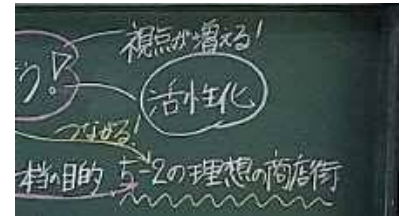 視点が増える!
う!
活性化
つながる!
の目的 5-2の理想の商店街